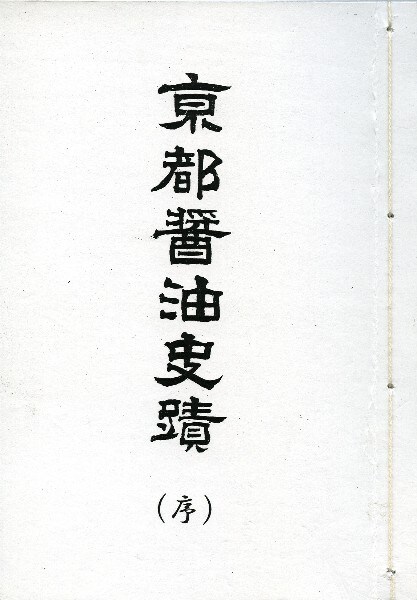 京都醤油史蹟
（序）